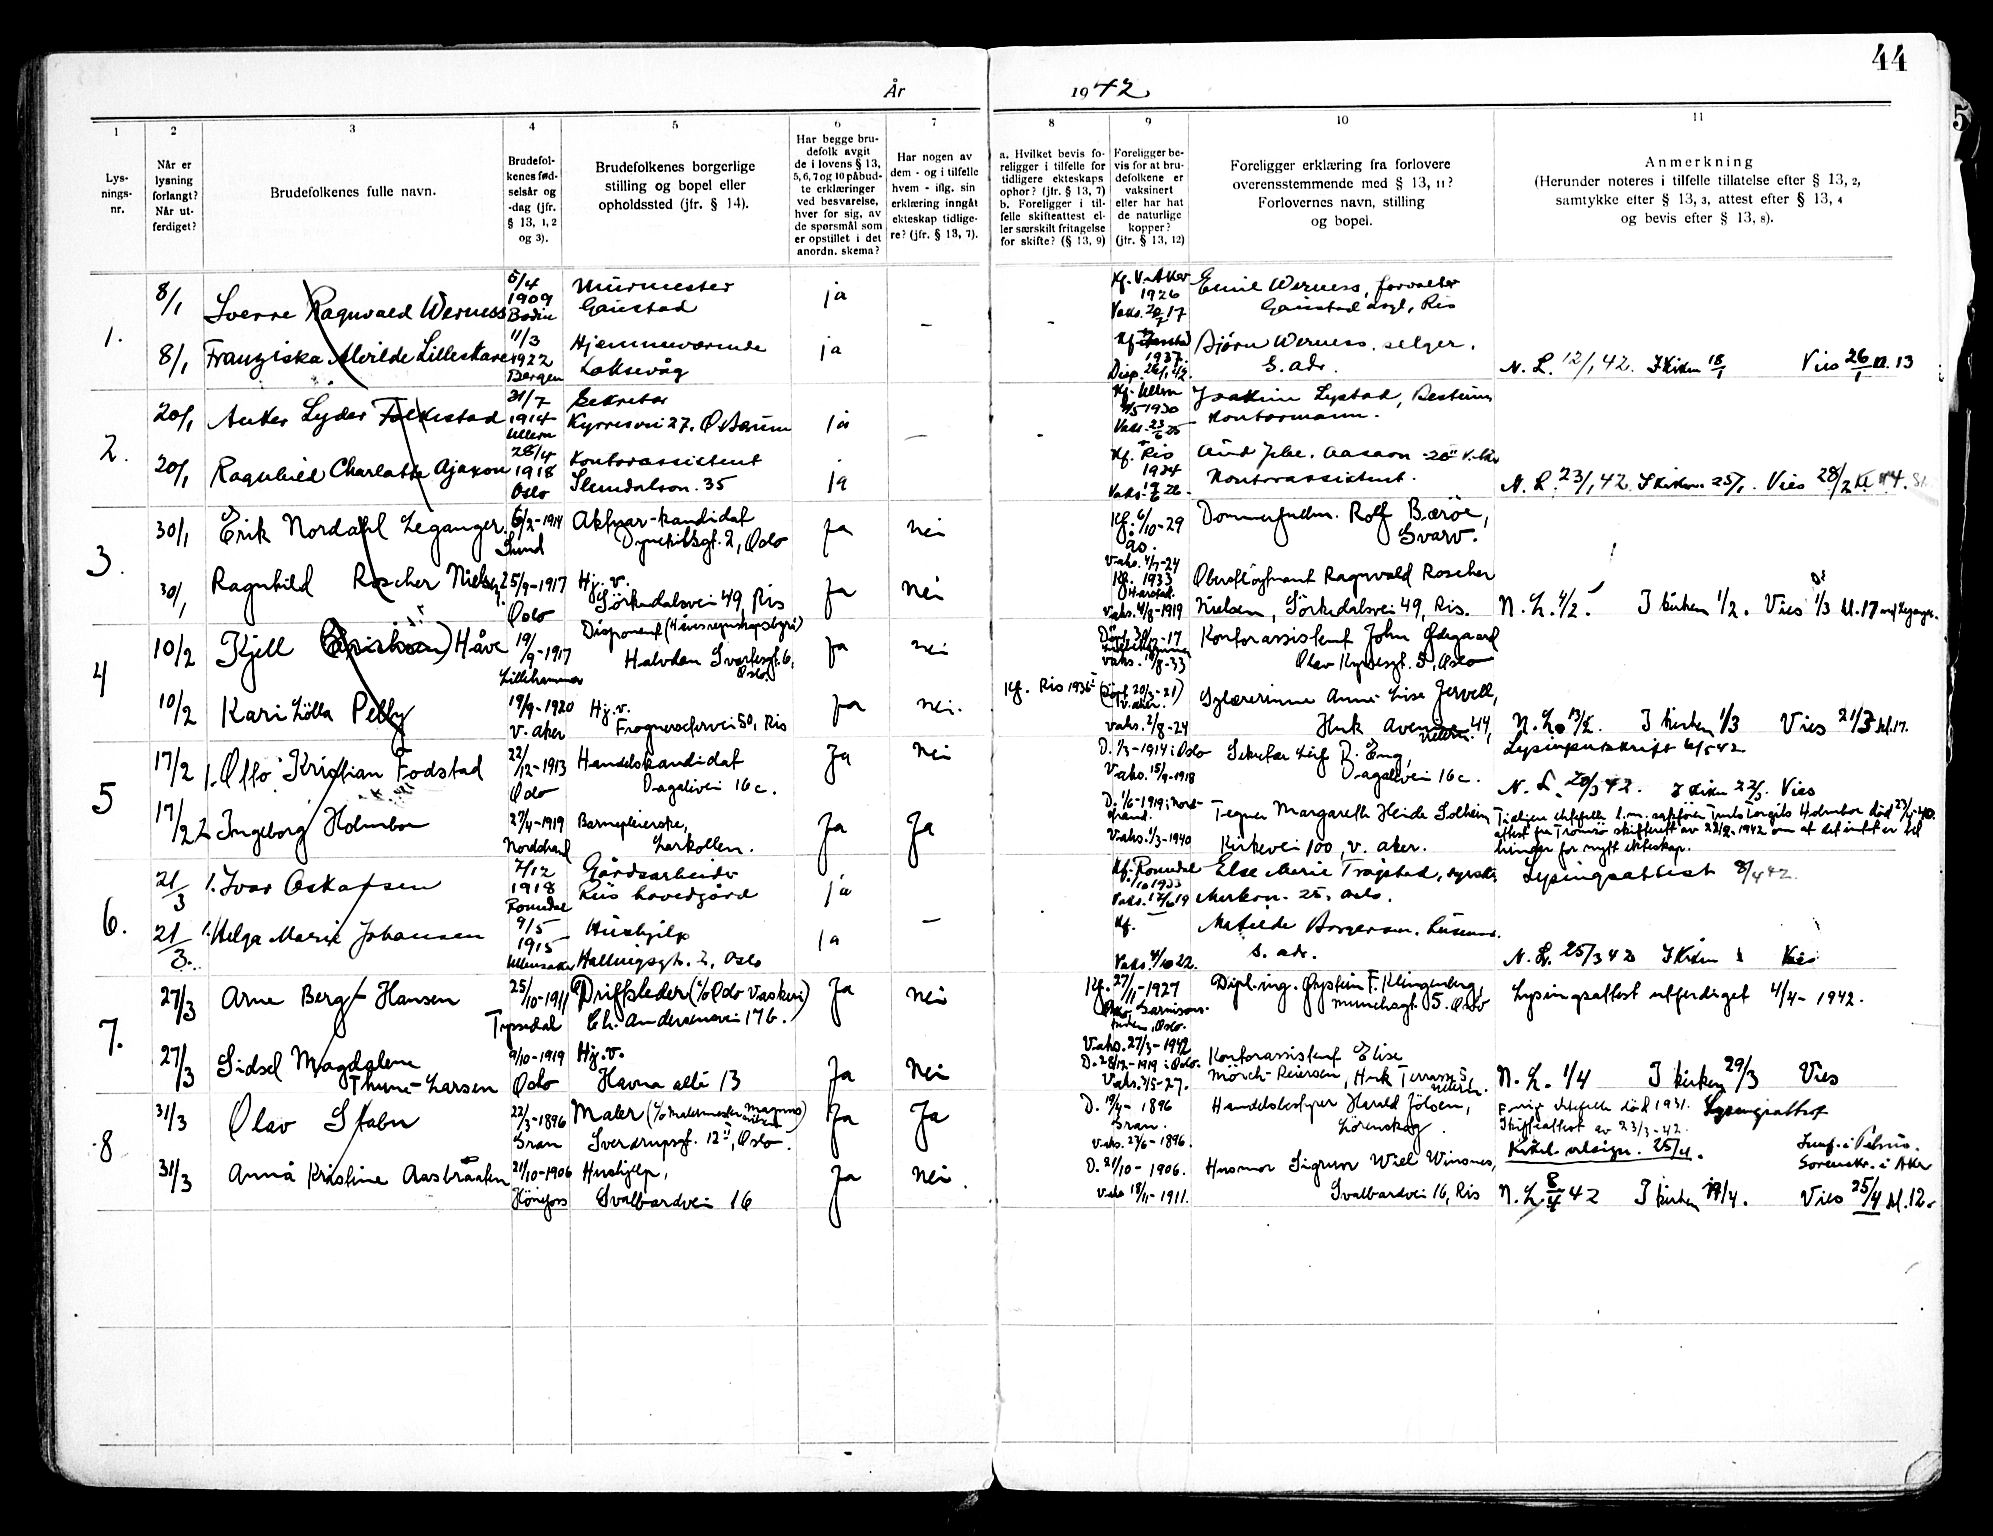 44
År 1942
1
Lys-
nings-
nr.
2
Når er
lysning
forlangt?
Når ut-
ferdiget?
3
Brudefolkenes fulle navn.
4
Brudefol-
kenes fød-
selsår og
-dag (jfr.
§ 13, 1, 2
og 3).
5
Brudefolkenes borgerlige
stilling og bopel eller
opholdssted (jfr. § 14).
6
Har begge bru-
defolk avgit
de i lovens § 13,
5, 6, 7 og 10 påbud-
te erklæringer
ved besvarelse,
hver for sig, av
de spørsmål som
er opstillet i det
anordn. skema?
7
Har nogen av
dem - og i tilfelle
hvem - iflg. sin
erklæring inngåt
ekteskap tidlige-
re? (jfr. § 13, 7).
8
a. Hvilket bevis fo-
religger i tilfelle for
tidligere ekteskaps
ophør? (jfr. § 13, 7)
b. Foreligger i til-
felle skifteattest el-
ler særskilt fritagelse
for skifte? (§ 13, 9)
9
Foreligger be-
vis for at bru-
defolkene er
vaksinert
eller har hat
de naturlige
kopper?
(jfr. § 13, 12)
10
Foreligger erklæring fra forlovere
overensstemmende med § 13, 11?
Forlovernes navn, stilling
og bopel.
11
Anmerkning
(Herunder noteres i tilfelle tillatelse efter § 13, 2,
samtykke efter § 13, 3, attest efter § 13, 4
og bevis efter § 13, 8).
1.
8/1
Sverre Ragnvald Werness
5/4
1909
Bodin
Murmester
Gaustad
ja
–
-
Kf. V. Aker
1926
Vaks. 20/7 17
Emil Werness, forvalter
Gaustad asyl, Ris
8/1
Franziska Alvilde Lilleskare
11/3
1922
Bergen
Hjemmeværende
Laksevåg
ja
1937.
Disp. 26/1 42.
Bjørn Werness, selger.
S. adr.
N. L. 12/1 42. I kirken 18/1 Vies 26/1 kl. 13
2.
20/1
Anker Lyder Folkestad
31/7
1914
Ullern
Sekretær
Kyrresvei 27. Ø. Bærum
ja
–
-
Kf. Ullern
1930
Vaks. 23/6 25
Joakim Lystad, Bestum
Kontormann.
20/1
Ragnhild Charlotte Ajaxon
28/4
1918
Oslo
Kontorassistent
Slemdalsvn. 35
ja
Kf. Ris
1934
Kontorassistent.
N. L. 23/1 42. I kirken 25/1. Vies 28/2
3.
30/1
Erik Nordahl Leganger
6/2-1914
Sund
Aktuar-kandidat
Dynekilsgt. 2, Oslo
ja
nei
Kf. 6/10-29
Vaks. 4/7-24
Dommerfullm. Rolf Bærøe,
30/1
Ragnhild Roscher Nielsen
25/9-1917
Oslo
Hj. v.
Sörkedalsvei 49, Ris
ja
nei
Kf. 1933
Harstad.
Vaks. 4/8-1919
Oberstlöytnant Ragnvald Roscher
Nielsen, Sörkedalsvei 49, Ris.
N. L. 4/2 I kirken 1/2. Vies 1/3 kl. 17
4
10/2
Kjell (Erikson) Håve
19/9-1917
Lillehammer
Disponent (Håves regnskapsbyrå)
Halvdan Svartesgt. 6,
Oslo.
ja
nei
Döpt 30/12-17
Lillehammer
Vaks. 10/8-33
Kontorassistent John Ødegaard
Olav Kyrresgt. 5, Oslo
10/2
Kari Lölla Pelby
19/9-1920
V. Aker
Hj. v.
Frognerseterveien 50, Ris
ja
nei.
Kf. Ris 1936
(Döpt 20/3-21)
V. Aker.
Vaks. 2/8-24
Lærerinne Anne-Lise Jervell,
Huk Aveny 44,
N. L. 13/2. I kirken 1/3 Vies 21/3 kl. 17.
5
17/2
1. Otto Kristian Fodstad
22/12-1913
Oslo
Handelskandidat
Dagalivei 16 c.
Ja
Nei
D. 1/3-1914 i Oslo
Vaks. 15/9-1918
Sekretær Leif R. Eng,
Dagalivei 16 c.
Lysingsutskrift 6/5 42
N. L. 20/3 42. I kirken 22/3 Vies
17/2
2. Ingeborg Holmboe
27/4-1919
Nordstrand
Barnepleierske,
Larkollen.
Ja
Ja
D. 1/6-1919 i Nord-
strand.
Vaks. 1/3-1940
Tegner Margareth Heide Solheim
Kirkevei 100, V. Aker.
attest fra Tromsö skifterett av 22/2-1942 om at det intet er til
hinder for nytt ekteskap.
6.
21/3
1. Ivar Oskarsen
7/12
1918
Romedal
Gårdsarbeider
Ris hovedgård
ja
Kf. Romedal
1/10 1933
Vaks. 17/6 19
Else Marie Trøgstad, syerske
Lysingsattest 8/4 42.
21/3.
1. Helga Marie Johansen
9/5
1915
Ullensaker
Hushjelp
Hallingsgt. 2, Oslo
ja
–
Kf. –
Vaks. 4/10 22.
S. adr.
N. L. 25/3 42 I kirken Vies
7.
27/3
Arne Berg-Hansen
25/10-1911
Tyssedal
Driftsleder (c/o Oslo Vaskeri)
Ch. Andersensvei 17 b.
Ja
Nei
Kf. 27/11-1927
Garnisons-
Oslo.
Vaks. 27/3-1942
Dipl. ing. Øystein F. Klingenberg,
Munchsgt. 5. Oslo
Lysingsattest utferdiget 4/4-1942.
27/3
Sidsel Magdalene
Thune-Larsen
9/10-1919
Oslo
Hj. v.
Havna allé 13
Ja
Nei
D. 28/12-1919 i Oslo.
Vaks. 3/5-27.
Kontorassistent Elise
Mörch-Reiersen, Huk Terrasse 5,
N. L. 1/4 I kirken 29/3 Vies
8
31/3
Olav Stabu
22/3-1896
Gran
Maler (c/o Malermester Magnus
Sverdrupsgt. 12 II, Oslo.
Ja
Ja
D. 19/4-1896
Gran.
Vaks. 23/6-1896.
Handelsbestyrer Harald Jölsen,
Lörenskog.
Forrige ektefelle död 1931. Lysingsattest
Skifteattest av 23/3-42.
Kirkel. velsign. 25/4.
Sorenskr. i Aker
31/3
Anna Kristine Aasbråaten
21/10-1906
Hönefoss
Hushjelp,
Svalbardvei 16
Ja
Nei.
D. 21/10-1906.
Vaks 18/11-1911.
Husmor Sigrun Wiel Winsnes,
Svalbardvei 16, Ris
N. L. 8/4 42 I kirken 19/4. Vies 25/4 kl. 12.